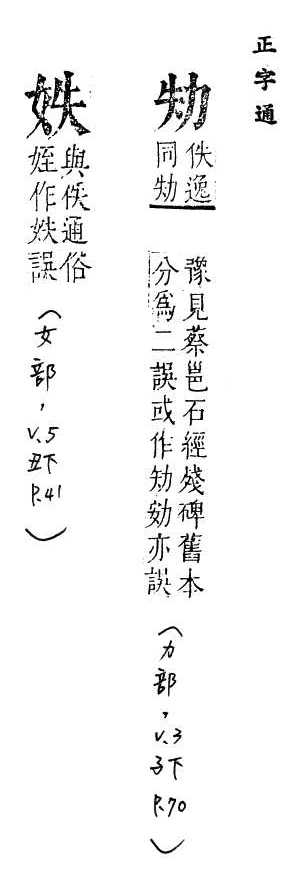 正字通
劮
佚逸
同劮
豫見蔡邕石經殘碑舊本
分爲二誤或作亦誤
（力部，V.3子下P.70）
妷
與佚通俗
姪作妷誤
（女部，V.5丑下P.41）